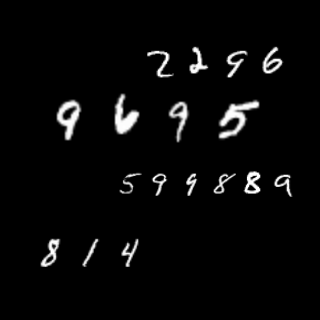 2296
9695
599889
814